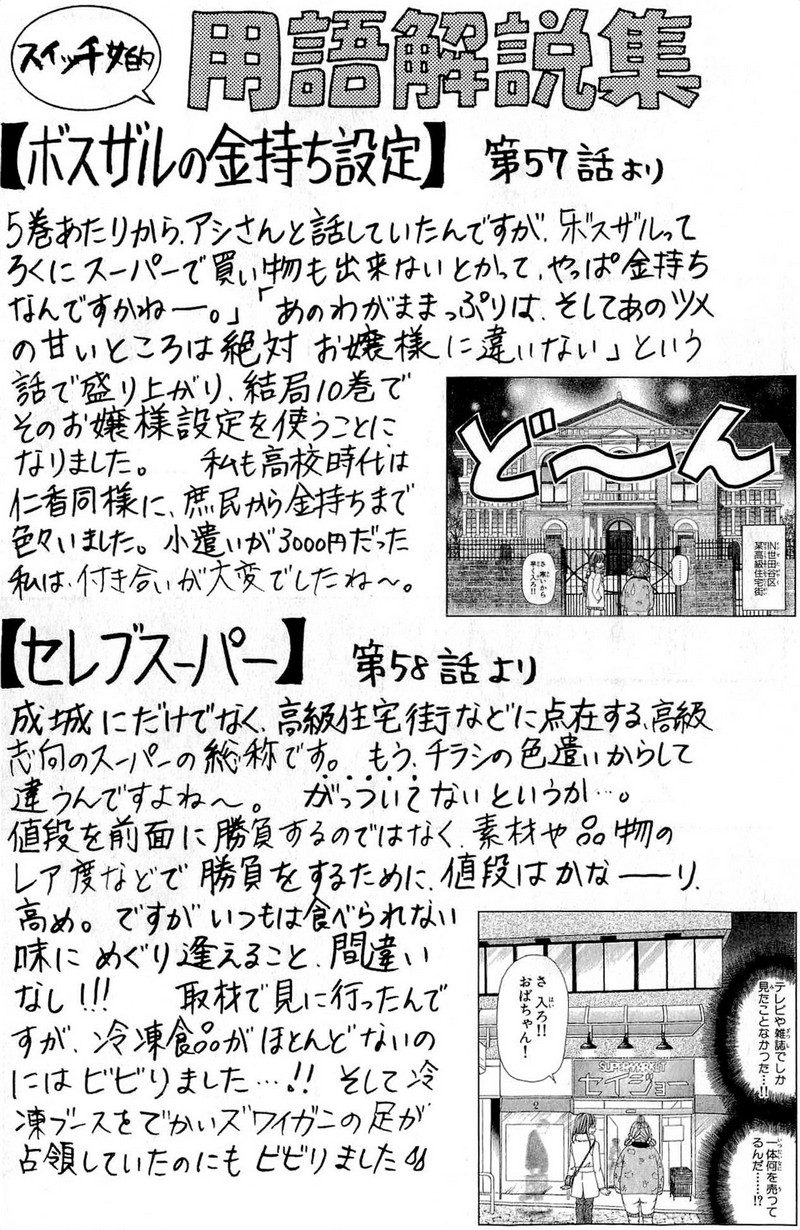 スイッチ女的
用語解説集
【ボスザルの金持ち設定】 第57話より
5巻あたりから、アシさんと話していたんですが、「ボスザルって
ろくにスーパーで買い物も出来ないとかって、やっぱ金持ち
なんですかねー。」「あのわがままっぷりは、そしてあのツメ
の甘いところは絶対 お嬢様に違いない」という
話で盛り上がり、結局10巻で
そのお嬢様設定を使うことに
なりました。 私も高校時代は
仁香同様に、庶民から金持ちまで
色々いました。小遣いが3000円だった
私は、付き合いが大変でしたね〜。
ど〜ん
N世田谷区
某高級住宅街
さ、寒いから
早く入ろ!!
な…
【セレブスーパー】 第58話より
成城にだけでなく、高級住宅街などに点在する、高級
志向のスーパーの総称です。もう、チラシの色遣いからして
違うんですよね〜。 がっついてないというか…。
値段を前面に勝負するのではなく、素材や品物の
レア度などで勝負をするために、値段はかなーーり、
高め。ですがいつもは食べられない
味に めぐり逢えること、間違い
なし!!! 取材で見に行ったんで
すが、冷凍食品がほとんどないの
にはビビりました…!! そして冷
凍ブースをでかいズワイガニの足が
占領していたのにもビビりました
テレビや雑誌でしか
見たことなかった…!!
さ 入ろ!!
おばちゃん!
SUPERMARKET
セイジョー
一体何を売って
るんだ……!?